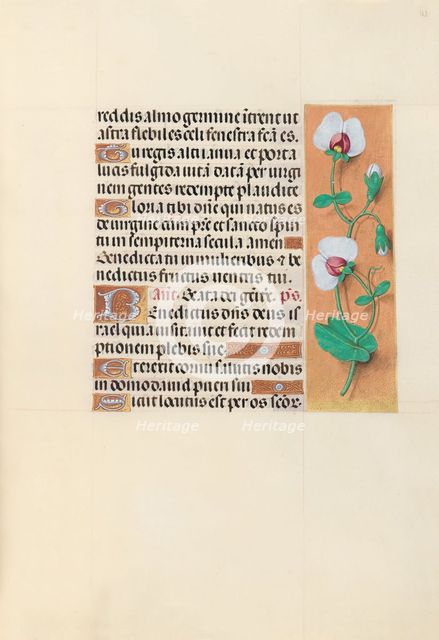 red dis almo germine itrent ut
astra flebiles celi fenestra fca es.
Tu regis alti ianua et porta
lucis fulgida vitā datā per virgi
nem gentes redempte plaudite
Gloria tibi dn̄e qui natus es
de virgine cum pr̄e et sancto spiri
tu in sempiterna secula amen
Benedicta tu in mulieribus et be
nedictus fructus ventris tui.
Añe. Beata dei gēnt̄. p̄s.
Benedictus dn̄s deus is
rael quia visitavit et fecit redem
ptionem plebis sue
Et erexit cornu salutis nobis
in domo david pueri sui
Sicut locutus est per os sc̄or
Heritage
Heritage
Heritage
Heritage